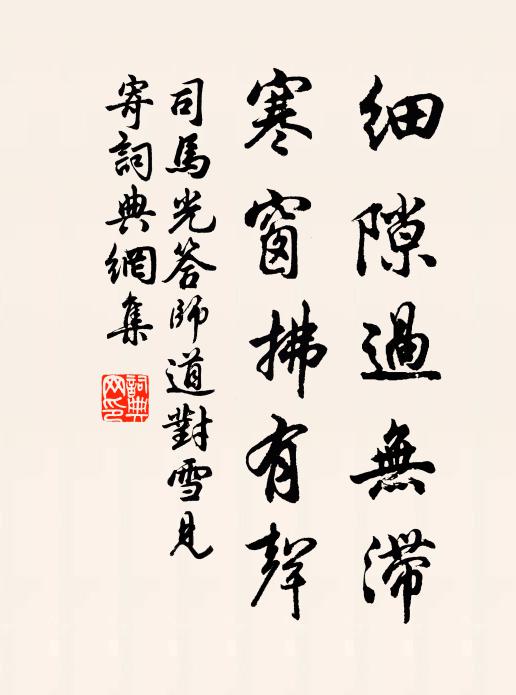 细隙過無滯
寒窗拂有聲
司馬光答師道對雪見
寄詞典網集
詞典
网印